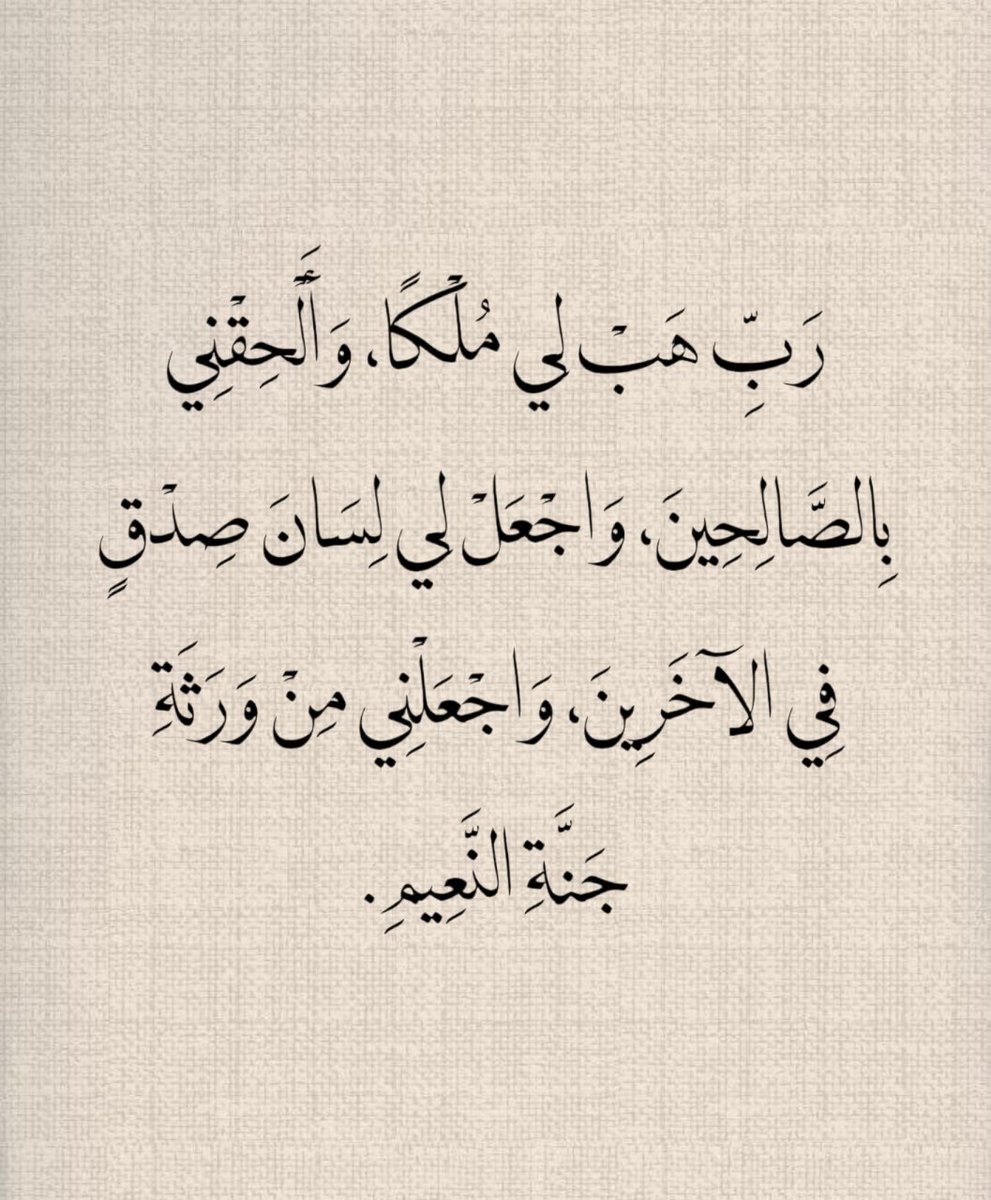 رَبِّ هَبْ لِي مُلْكًا، وَأَلْحِقْنِي
بِالصَّالِحِينَ، وَاجْعَلْ لِي لِسَانَ صِدْقٍ
فِي الآخَرِينَ، وَاجْعَلْنِي مِنْ وَرَثَةِ
جَنَّةِ النَّعِيمِ.